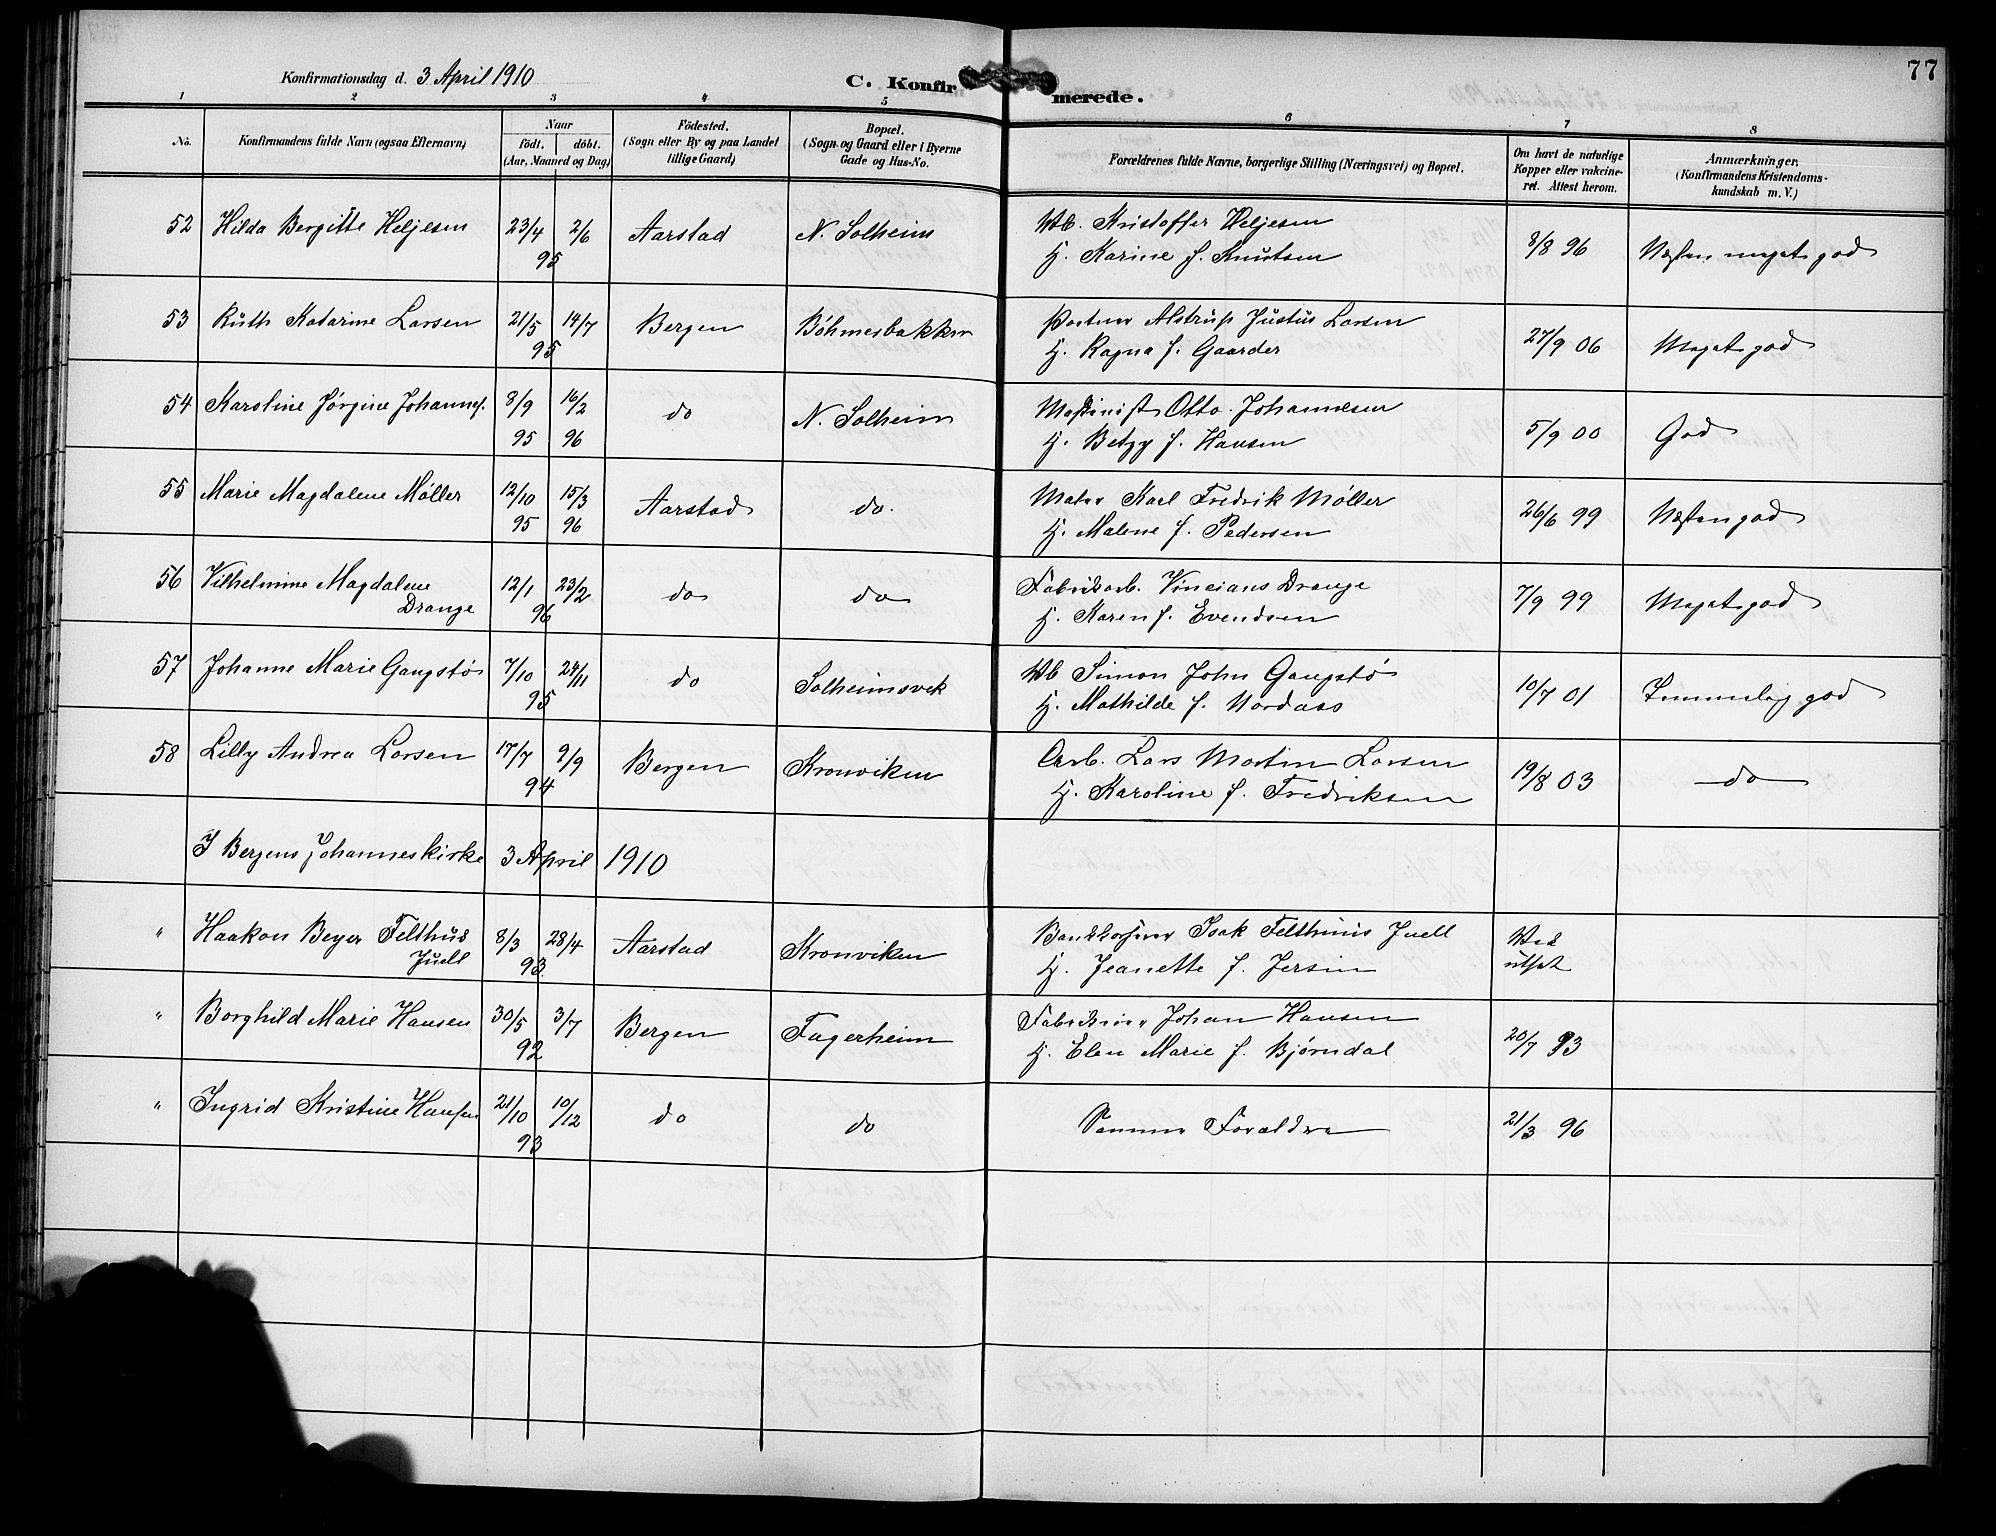 Konfirmationsdag d. 3 April 1910
C. Konfirmerede.
77
1 2 3 4 5 6 7 8
No.
Konfirmandens fulde Navn (ogsaa Efternavn)
Naar
födt. döbt.
(Aar, Maaned og Dag)
Födested.
(Sogn eller By og paa Landet
tillige Gaard)
Bopæl.
(Sogn og Gaard eller i Byerne
Gade og Hus-No.
Forældrenes fulde Navne, borgerlige Stilling (Næringsvei) og Bopæl.
Om havt de naturlige
Kopper eller vakcine-
ret. Attest herom.
Anmærkninger,
(Konfirmandens Kristendoms-
kundskab m. V.)
52 Hilda Bergitte Heljesen 23/4 2/6 95 Aarstad N. Solheim
Kristoffer Heljesen
Hj. Karine f. Knutsen
8/8 96 Næsten meget god
53 Ruth Katarine Larsen 21/5 14/7 95 Bergen Böhmesbakken
Alstrup Justus Larsen
Hj. Ragna f. Gaarder
27/9 06 Meget god
54 Karoline Jørgine Johannes. 8/9 95 16/2 96 do N. Solheim
Maskinist Otto Johannesen
Hj. Betzy f. Hansen
5/9 00 God
55 Marie Magdalene Møller 12/10 95 15/3 96 Aarstad do.
Maler Karl Fredrik Møller
Hj. Malene f. Pedersen
26/6 99 Næsten god
56 Vilhelmine Magdalene
Drange 12/1 23/2 96 do do
Fabrikarb. Vincians Drange
Hj. Karen f. Evendsen
7/9 99 Meget god
57 Johanne Marie Gangstø 7/10 24/11 95 do Solheimsvik
Simon John Gangstø
Hj. Mathilde f. Nordaas
10/7 01 Temmelig god
58 Lilly Andrea Larsen 17/7 9/9 94 Bergen Kronviken
Arb. Lars Martin Larsen
Hj. Karoline f. Fredriksen
19/8 03 do
I Bergens Johanneskirke 3 April 1910
" Haakon Beyer Felthus
Juell 8/3 28/4 93 Aarstad Kronviken
Bankkasserer Isak Felthuus Juell
Hj. Jeanette f. Jersin
Ved
utsat
" Borghild Marie Hansen 30/5 3/7 92 Bergen Fagerheim
Johan Hansen
Hj. Elen Marie f. Bjørndal
20/7 93
" Ingrid Kristine Hansen 21/10 10/12 93 do do
Samme Foraldre
21/3 96